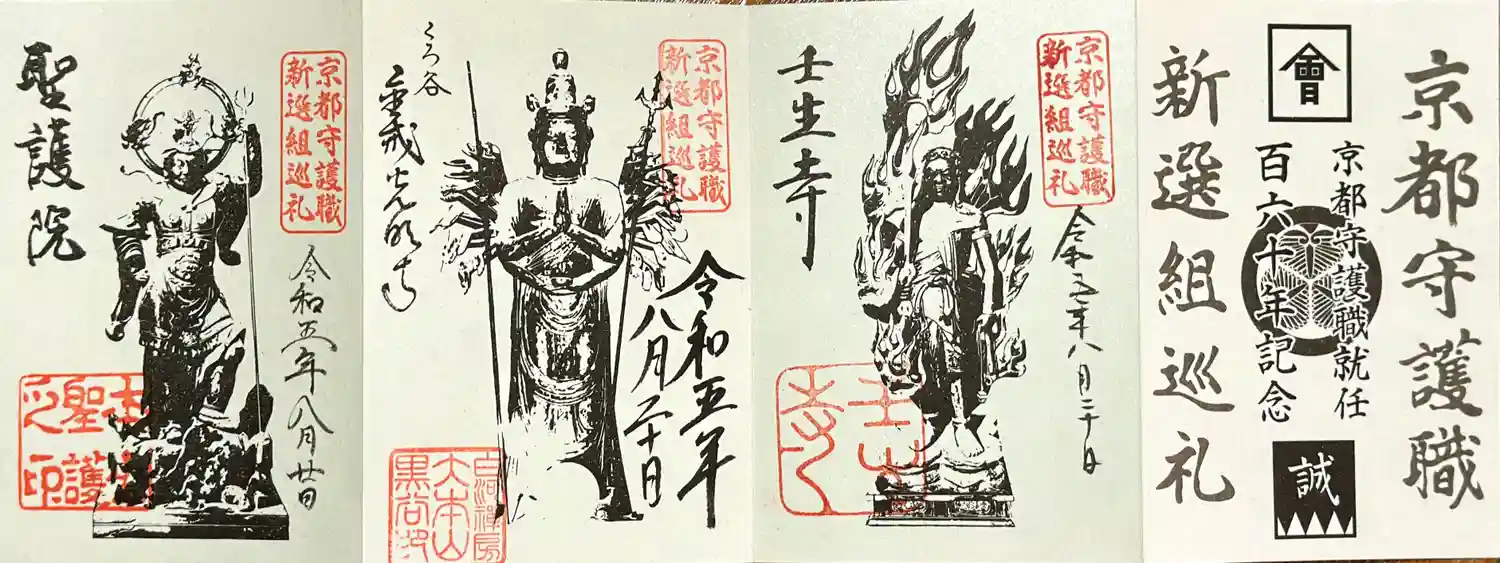 京都守護職
新選組巡礼
會
京都守護職就任
百六十年記念
誠
京都守護職
新選組巡礼
壬生寺
令和五年八月二十日
京都守護職
新選組巡礼
くろ谷
金戒光明寺
令和五年
八月二十日
白河禅房
大本山
黒谷印
京都守護職
新選組巡礼
聖護院
令和五年八月廿日